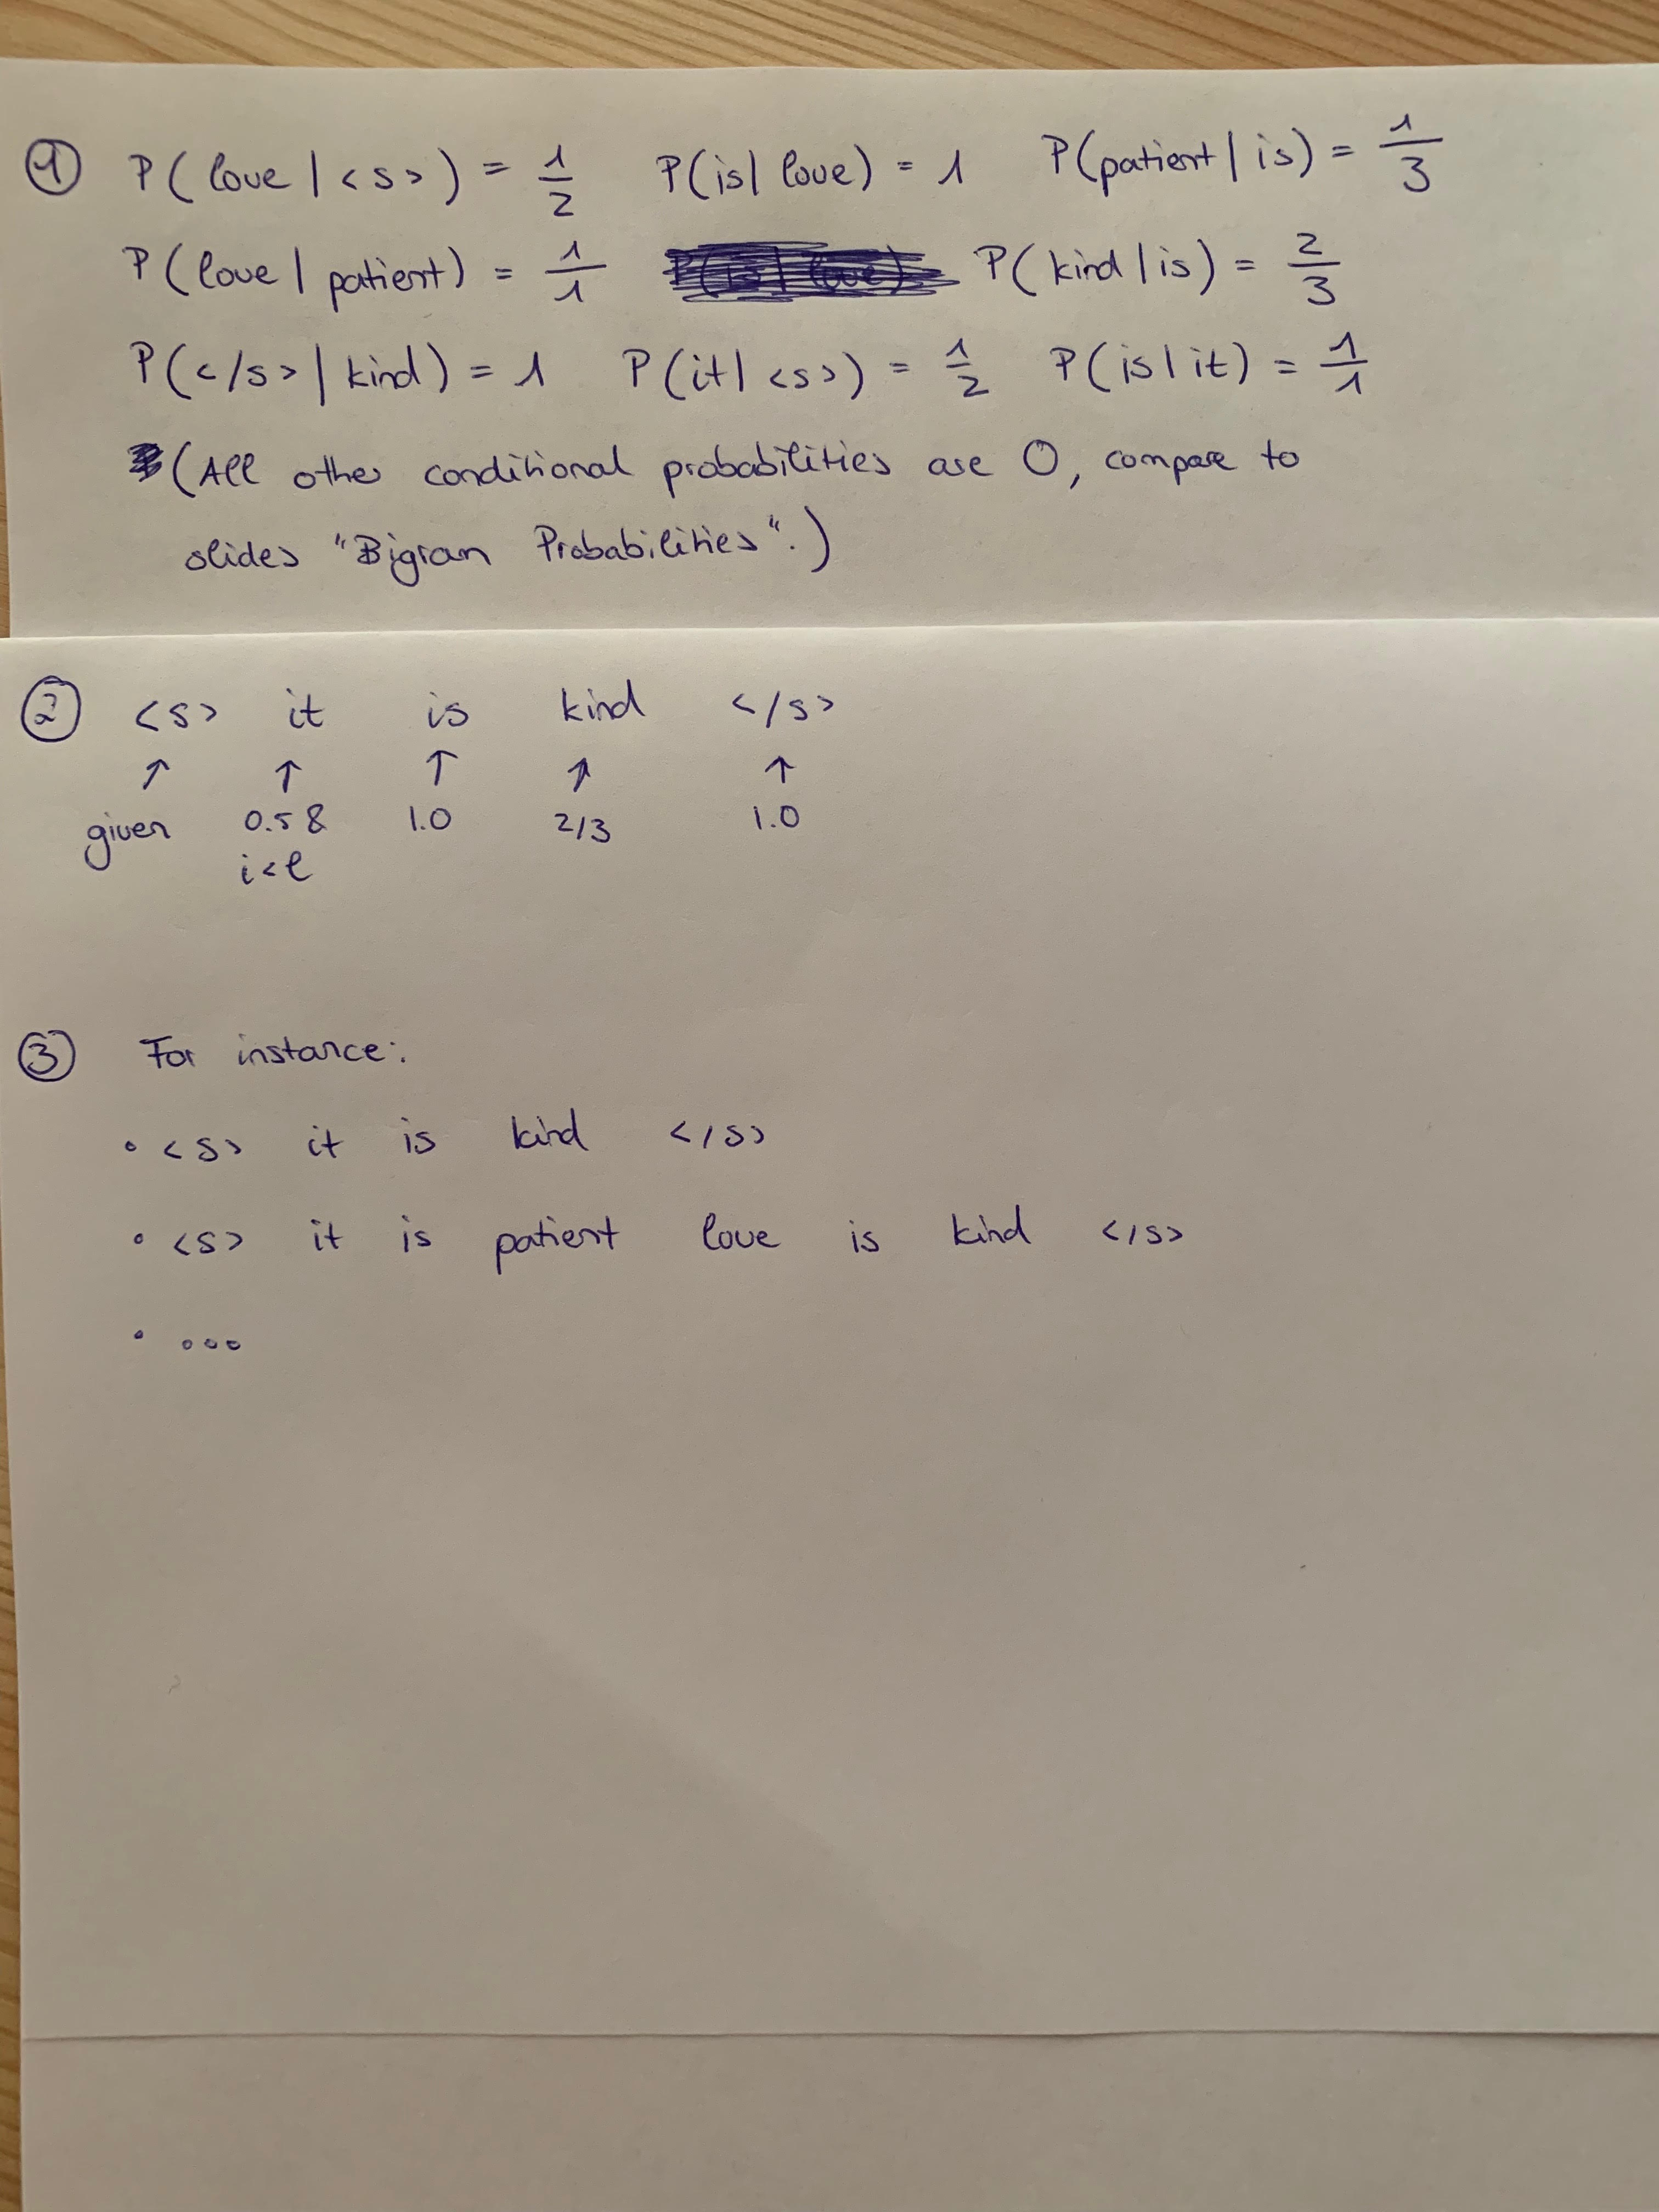 ① P(love | <s>) = 1/2 P(is | love) = 1 P(patient | is) = 1/3
P(love | patient) = 1/1 P(kind | is) = 2/3
P(</s> | kind) = 1 P(it | <s>) = 1/2 P(is | it) = 1/1
(All other conditional probabilities are 0, compare to
slides "Bigram Probabilities".)
② <s> it is kind </s>
↑ ↑ ↑ ↑ ↑
given 0.5 & 1.0 2/3 1.0
i<l
③ For instance:
• <s> it is kind </s>
• <s> it is patient love is kind </s>
• ...